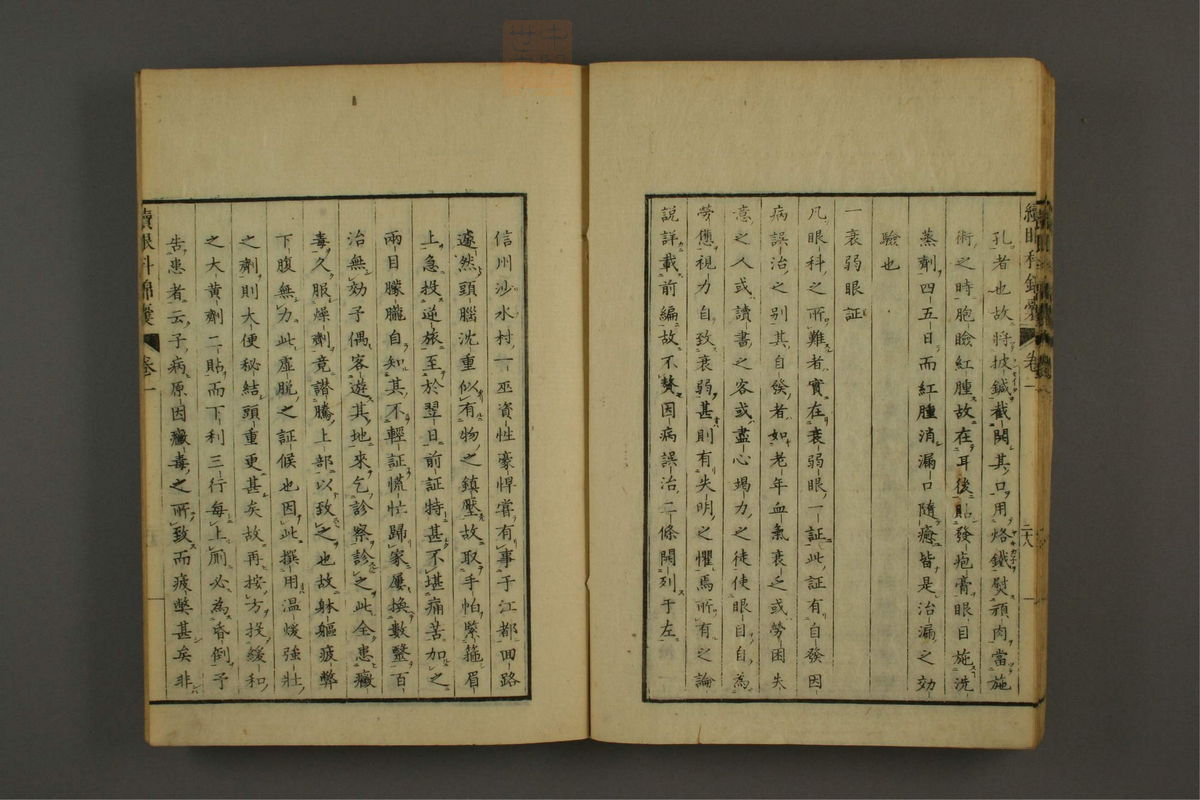 續眼科錦囊 卷一
孔者也故將披鍼截開其口用烙鐵熨頑肉當施
術之時胞瞼紅腫故在耳後貼發疱膏眼目施洗
蒸劑四五日而紅腫消漏口隨癒皆是治漏之効
驗也
一衰弱眼証
凡眼科之所難者實在衰弱眼一証此証有自發因
病誤治之别其自發者如老年血氣衰乏或勞困失
意之人或讀書之客或盡心竭力之徒使眼目自為
勞憊視力自致衰弱甚則有失明之懼焉所有之論
說詳載前編故不贅因病誤治二條開列于左
信州沙水村一巫資性豪悍嘗有事于江都回路
遽然頭腦沈重似有物之鎮壓故取手帕緊箍眉
上急投逆旅至於翌日前証特甚不堪痛苦加之
兩目朦朧自知其不輕証慌忙歸家屢換數醫百
治無効予偶客遊其地來乞診察診之此全患黴
毒久服燥劑竟譛騰上部以致之也故躰軀疲弊
下腹無力此虛脱之証候也因此撰用温煖強壯
之劑則大便秘結頭重更甚矣故再按方投緩和
之大黄劑二貼而下利三行每上厠必為昏倒予
告患者云子病原因黴毒之所致而疲弊甚矣非
續眼科錦囊 卷一